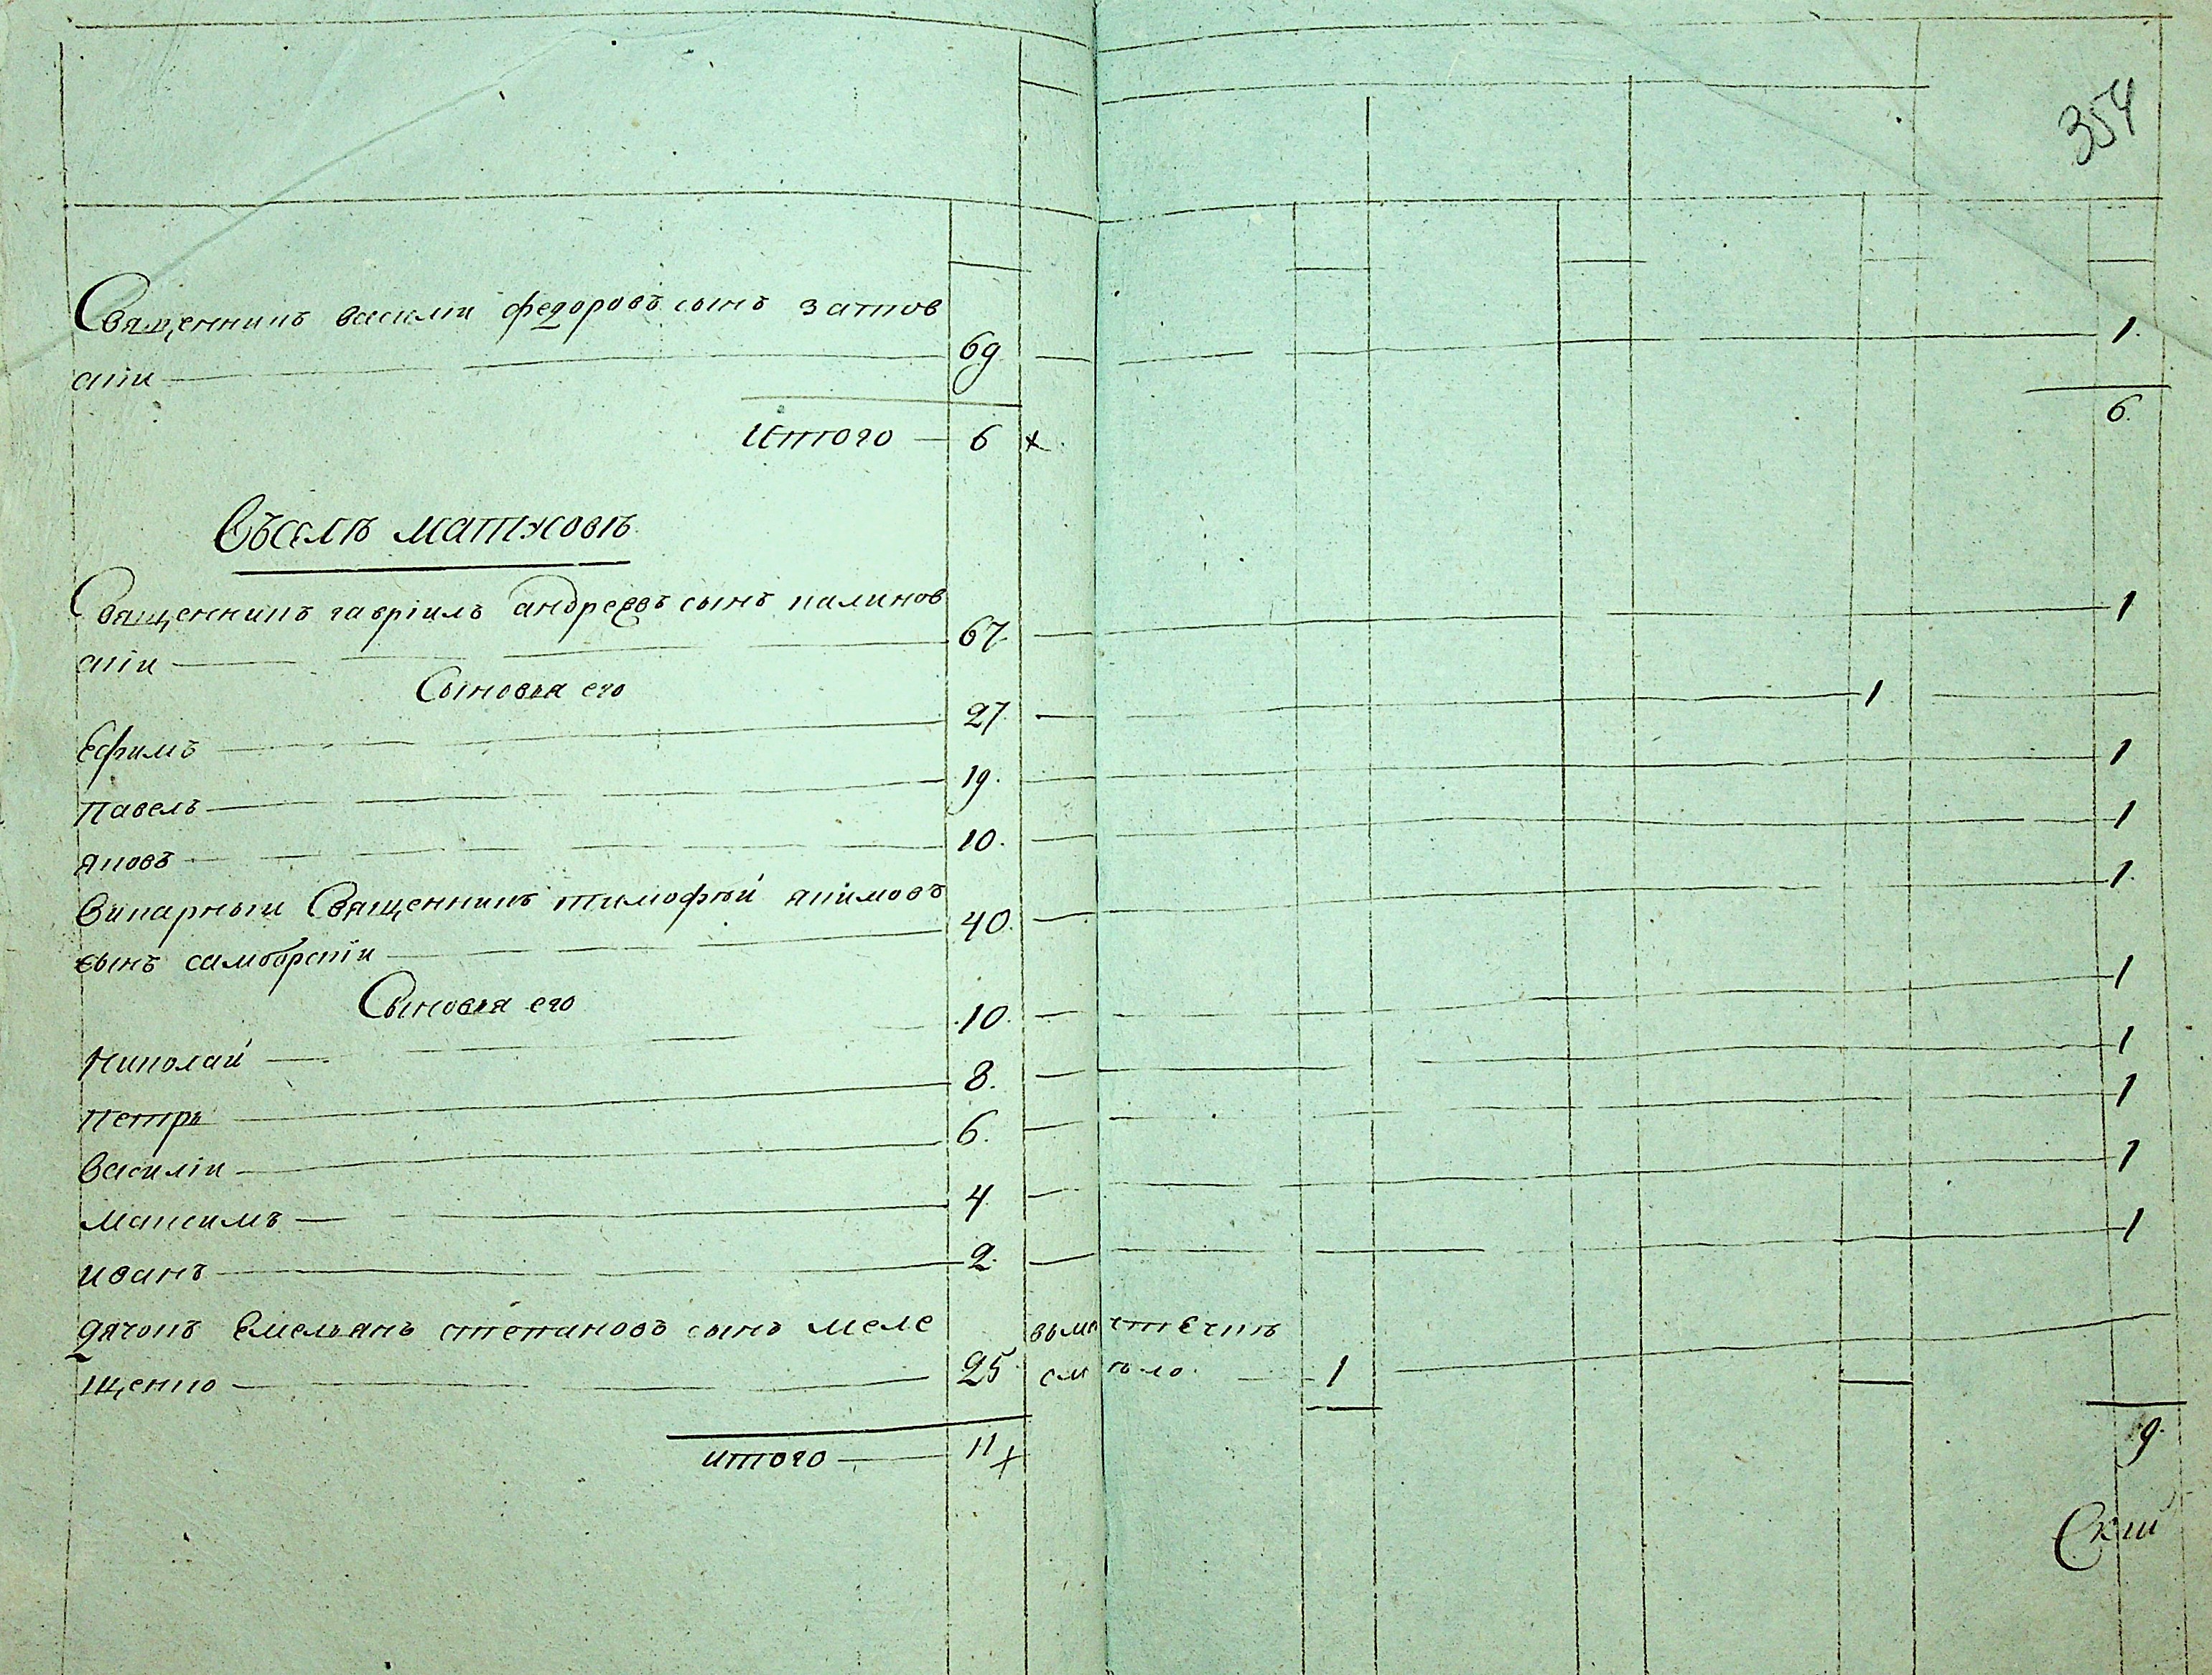 354
Священникъ василіи федоровъ сынъ затков
скіи 69 1.
6.
Итого 6 x
Въселѣ матусовѣ
Священникъ гавріилъ андреевъ сынъ калинов
скіи 67. 1
Сыновья его
Ефимъ 27. 1
павелъ 19. 1
яковъ 10. 1
викарныи Священникъ тимофѣй якимовъ
сынъ самборскіи 40. 1.
Сыновья его
Николай 10. 1
петръ 8. 1
василіи 6. 1
максимъ 4. 1
иванъ 2. 1
дячокъ Емельянъ степановъ сынъ меле
щенко 25. 1
итого 11 x 9.
Скій